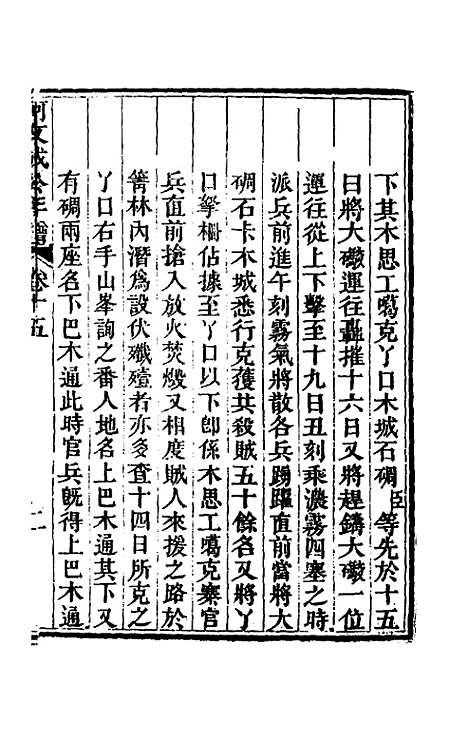 下其木思工噶克丫口木城石碉臣等先於十五
日將大礮運往轟摧十六日又將趕鑄大礮一位
運往從上下擊至十九日丑刻乘濃霧四塞之時
派兵前進午刻霧氣將散各兵踴躍直前當將大
碉石卡木城悉行克獲共殺賊五十餘名又將丫
口拏柵佔據至丫口以下卽係木思工噶克寨官
兵直前搶入放火焚燬又相度賊人來援之路於
箐林內潛爲設伏殲殪者亦多查十四日所克之
丫口右手山峯詢之番人地名上巴木通其下又
有碉兩座名下巴木通此時官兵旣得上巴木通
阿文成公年譜 卷十五